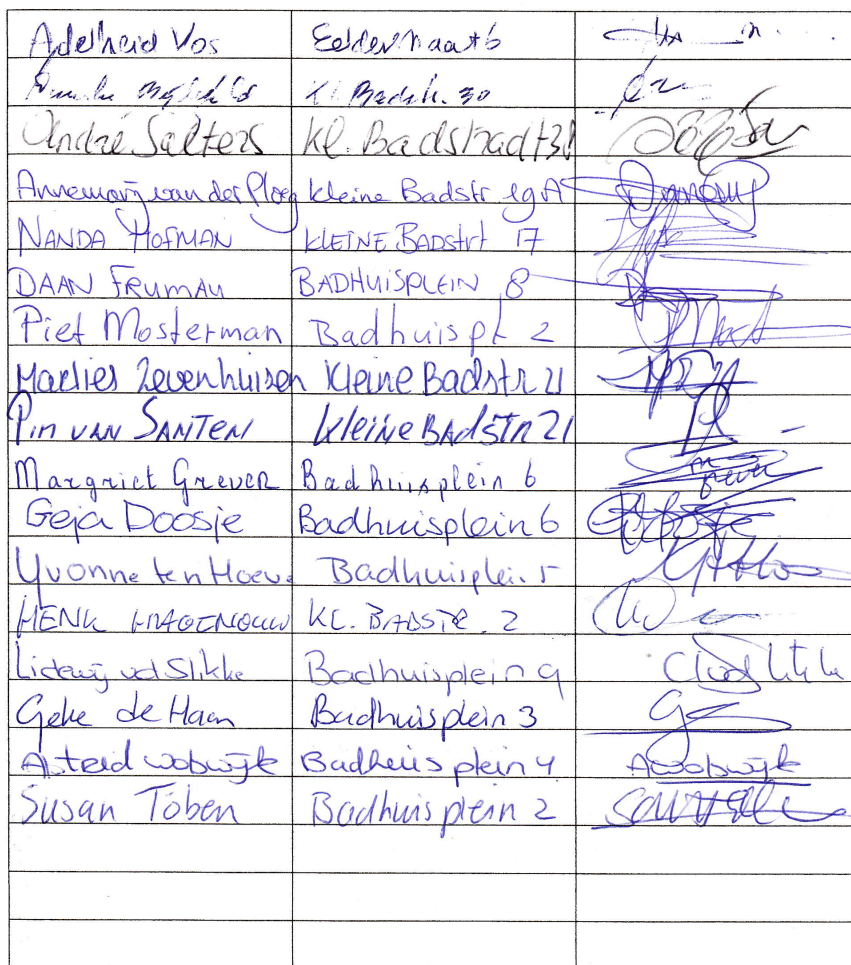 Adelheid Vos
Kl. Badstr. 30
André Salters Kl. Badstraat 38
Annemarij van der Ploeg Kleine Badstr 19A
NANDA HOFMAN KLEINE BADstrt 17
DAAN FRUMAU BADHUISPLEIN 8
Piet Mosterman Badhuispl 2
Marlies Zevenhuizen Kleine Badstr 21
Pim VAN SANTEN Kleine BADSTR 21
Margriet Grever Badhuisplein 6
Geja Doosje Badhuisplein 6
Yvonne ten Hoeve Badhuisplein 5
HENK KL. BADSTR. 2
Lidewij vd Slikke Badhuisplein 9
Geke de Haan Badhuisplein 3
Astrid Wobwijk Badhuisplein 4 AWobwijk
Susan Töben Badhuisplein 2